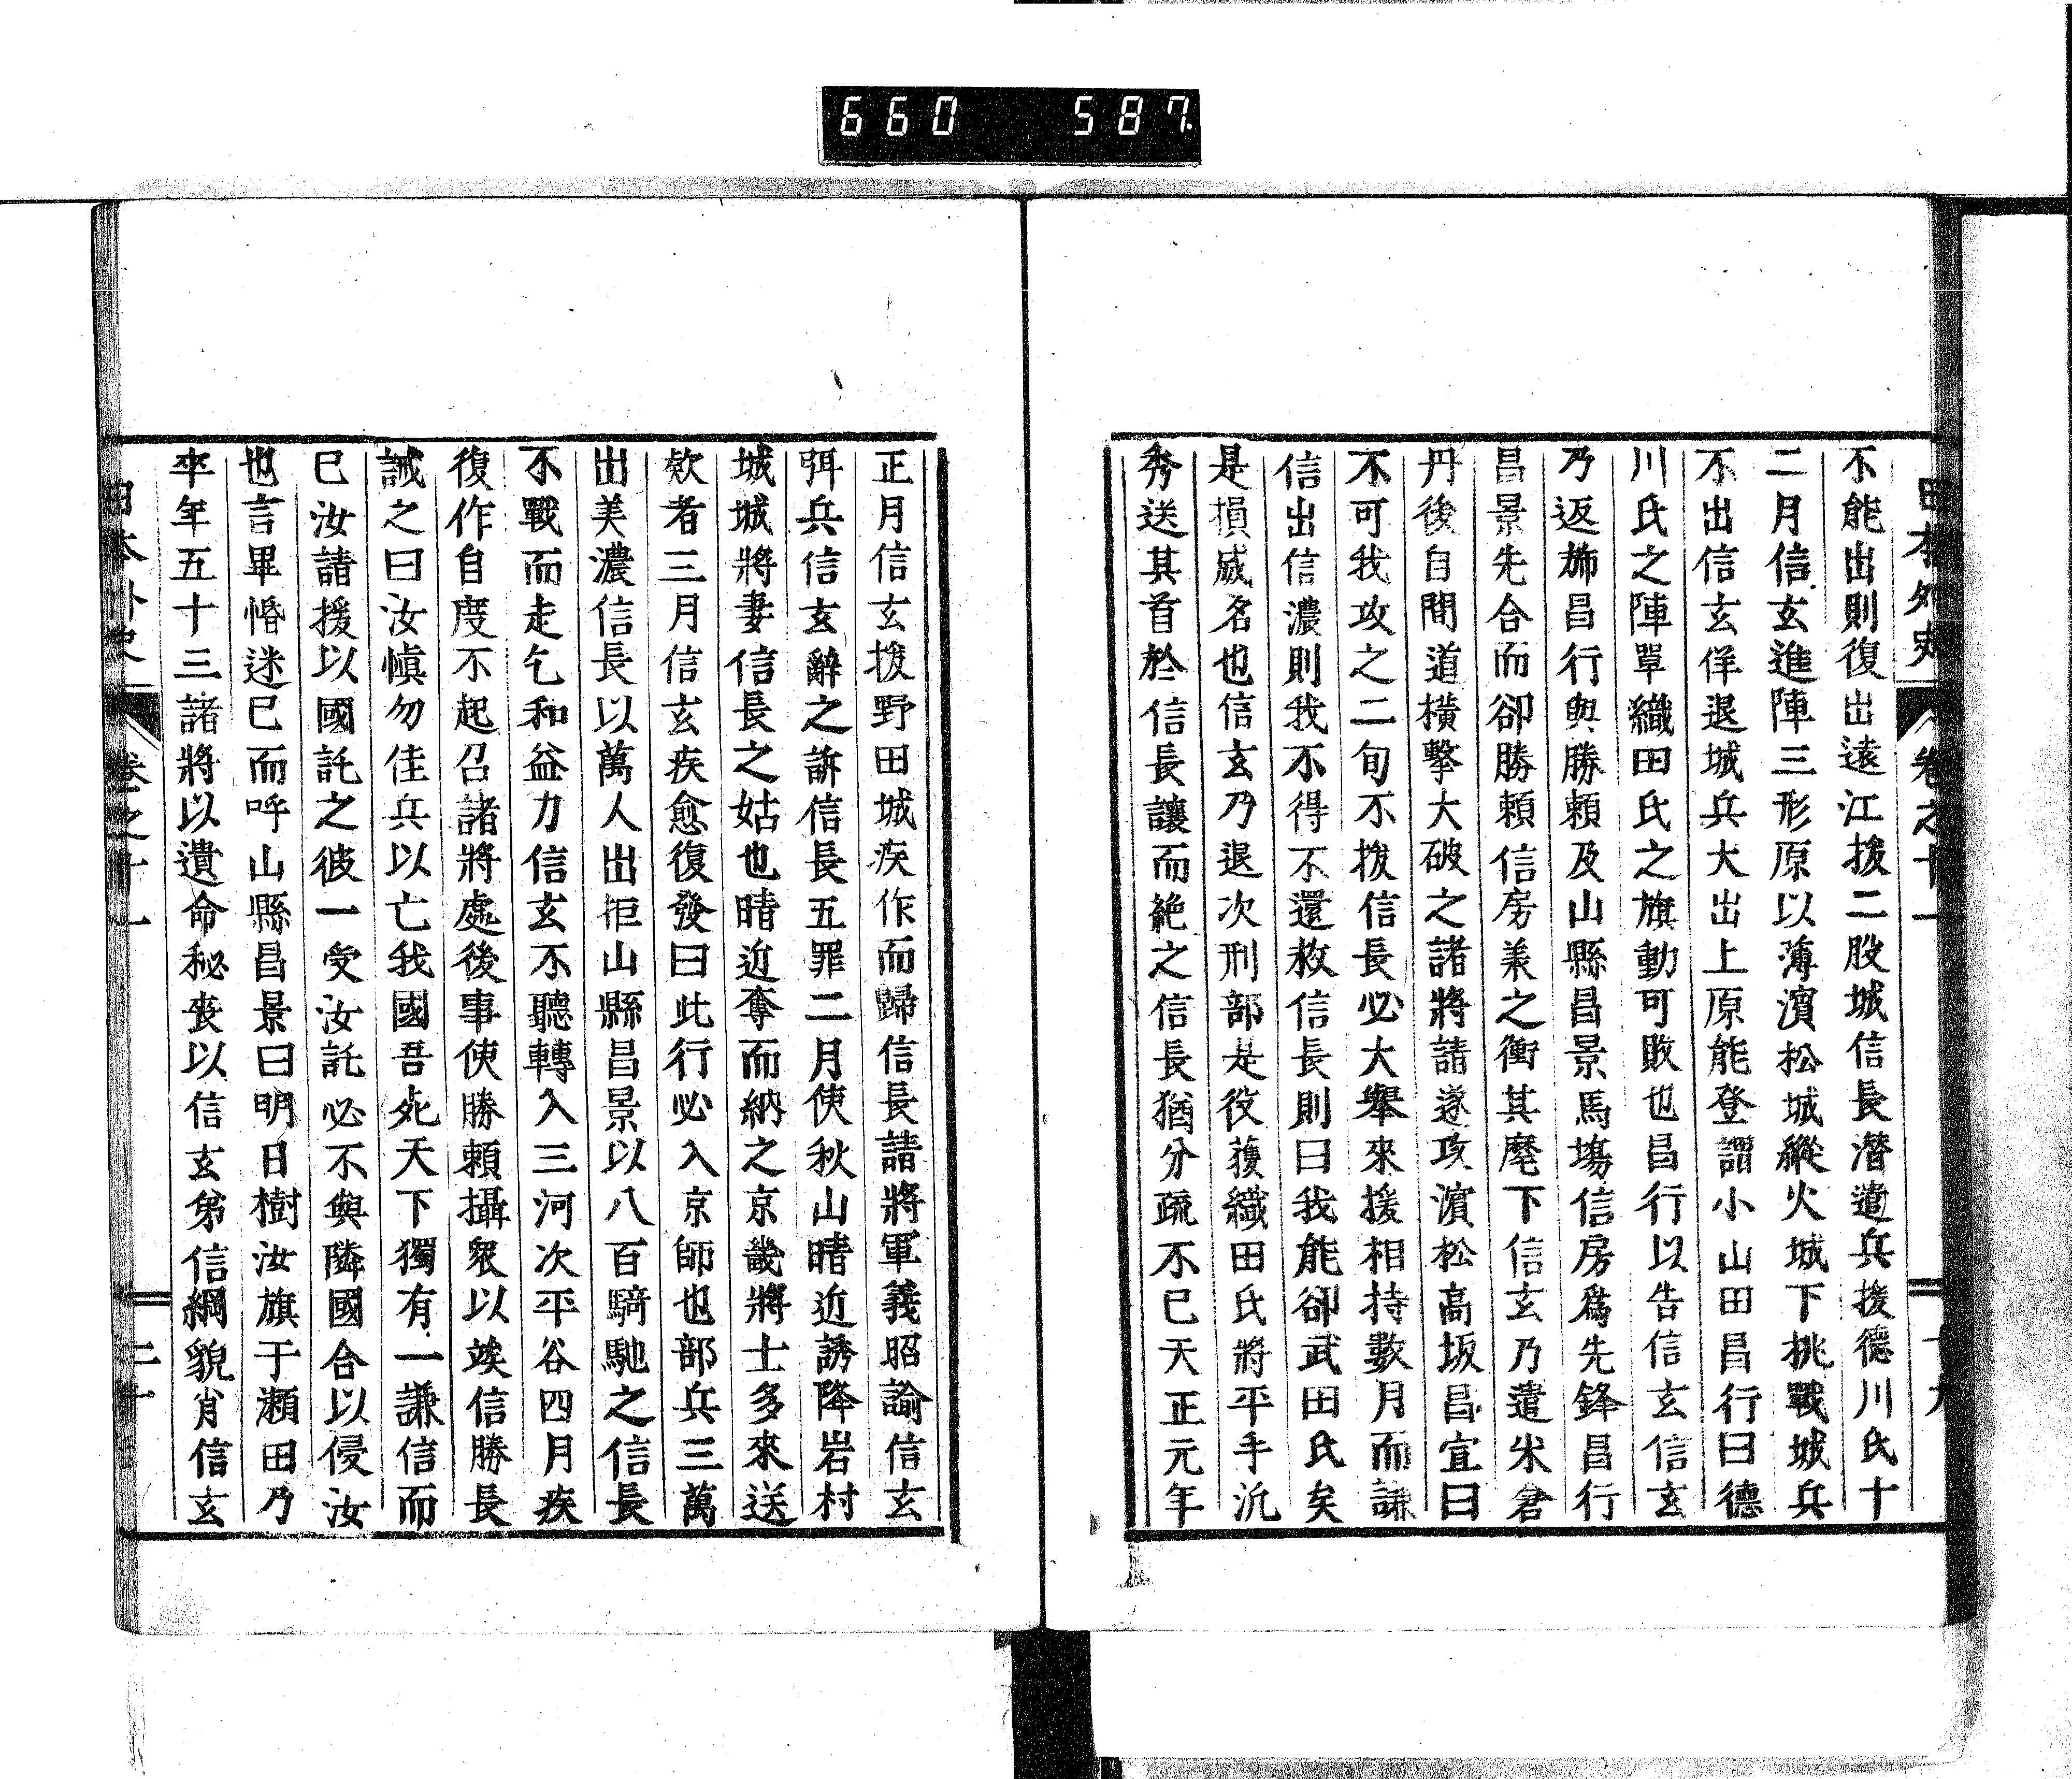 660 587.
日本外史 卷之十一 十九
不能出則復出遠江拔二股城信長潛遣兵援德川氏十
二月信玄進陣三形原以薄濱松城縱火城下挑戰城兵
不出信玄佯退城兵大出上原能登謂小山田昌行曰德
川氏之陣單織田氏之旗動可敗也昌行以告信玄信玄
乃返旆昌行與勝賴及山縣昌景馬塲信房爲先鋒昌行
昌景先合而卻勝賴信房乘之衝其麾下信玄乃遣米倉
丹後自間道橫擊大破之諸將請遂攻濱松高坂昌宜曰
不可我攻之二旬不拔信長必大舉來援相持數月而謙
信出信濃則我不得不還救信長則曰我能卻武田氏矣
是損威名也信玄乃退次刑部是役獲織田氏將平手汎
秀送其首於信長讓而絶之信長猶分疏不已天正元年
正月信玄拔野田城疾作而歸信長請將軍義昭諭信玄
弭兵信玄辭之訴信長五罪二月使秋山晴近誘降岩村
城城將妻信長之姑也晴近奪而納之京畿將士多來送
欵者三月信玄疾愈復發曰此行必入京師也部兵三萬
出美濃信長以萬人出拒山縣昌景以八百騎馳之信長
不戰而走乞和益力信玄不聽轉入三河次平谷四月疾
復作自度不起召諸將處後事使勝賴攝衆以竢信勝長
誡之曰汝愼勿佳兵以亡我國吾死天下獨有一謙信而
已汝諸援以國託之彼一受汝託必不與隣國合以侵汝
也言畢惛迷已而呼山縣昌景曰明日樹汝旗于瀨田乃
卒年五十三諸將以遺命秘喪以信玄弟信綱貌肖信玄
日本外史 卷之十一 二十